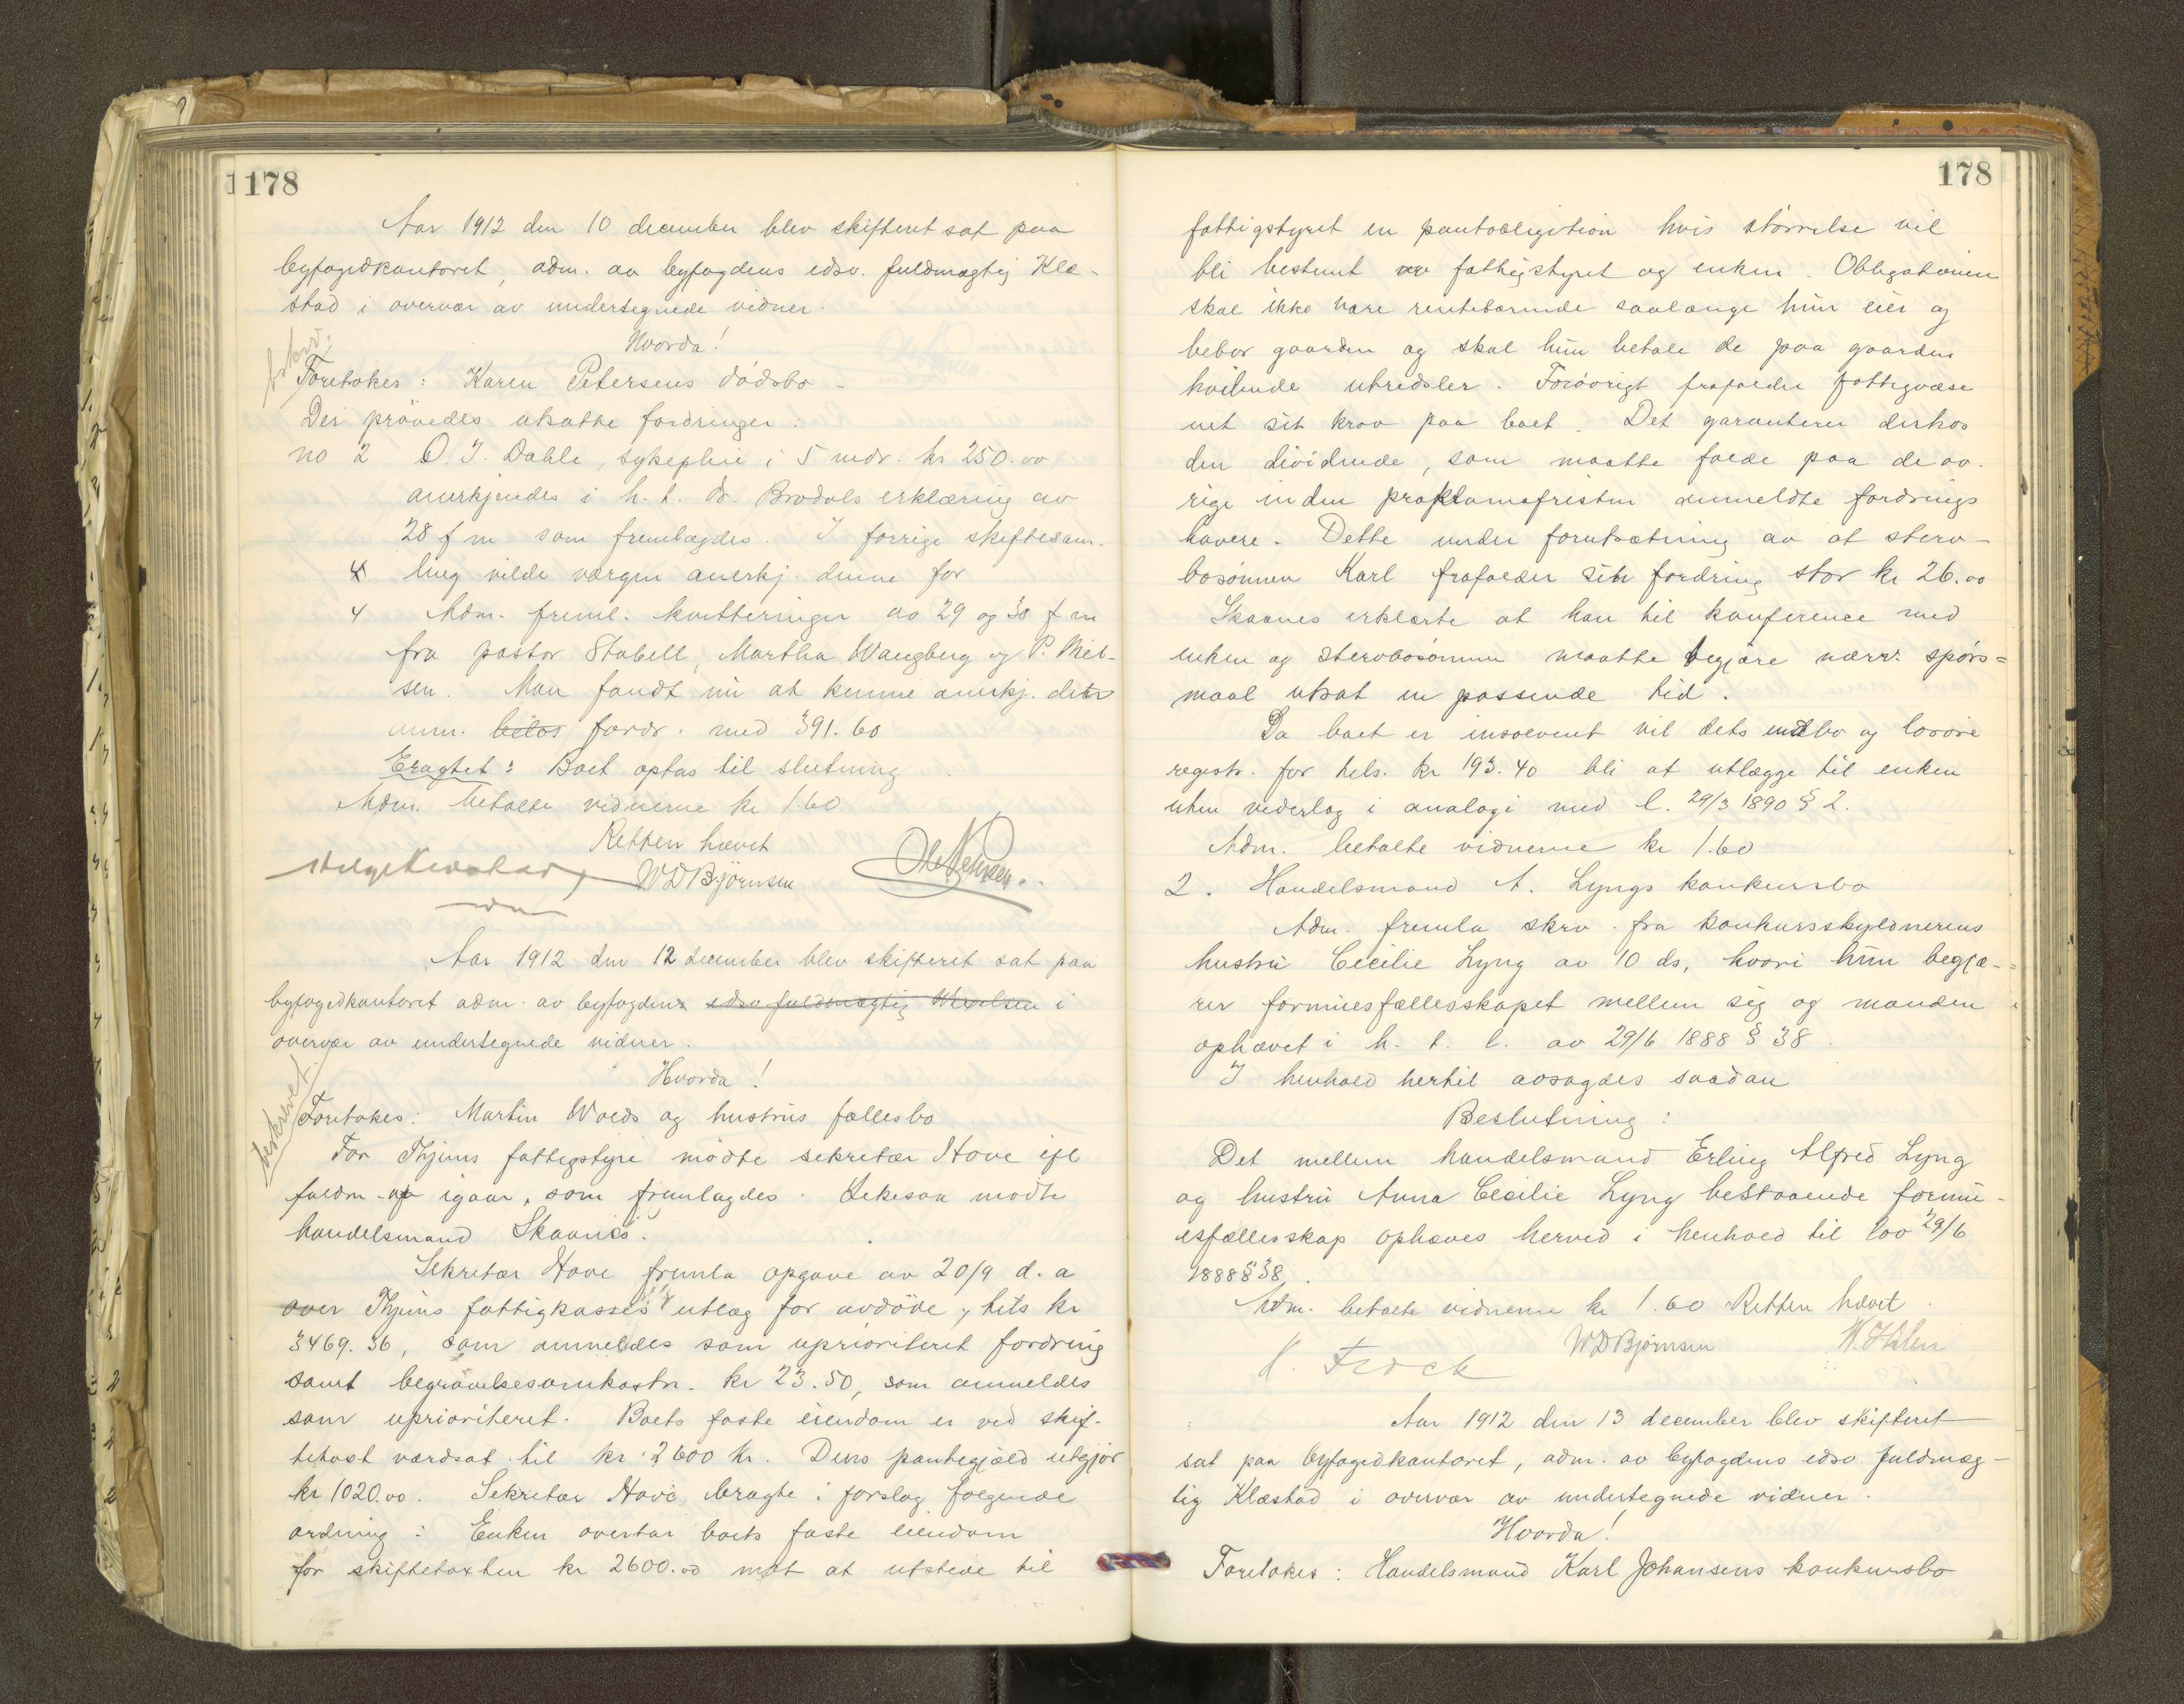 178
Aar 1912 den 10 december blev skifteret sat paa
byfogedkontoret, adm. av byfogdens edsv. fuldmægtig Klæ-
stad i overvær av undertegnede vidner.
Hvorda!
Foretokes: Karen Petersens dødsbo -
Der prøvedes utsatte fordringer:
no 2 O. J. Dahle, sykepleie i 5 mdr. kr 250.00
anerkjendes i h. t. dr. Brodals erklæring av
28 f m som fremlægdes. I forrige skiftesam-
4 ling vilde værgen anerkj. denne for
4 Adm. freml. kvitteringer av 29 og 30 f m
fra pastor Stabell, Martha Wangberg og P. Niel-
sen. Man fandt nu at kunne anerkj. den
anm. beløs fordr. med 391.60
Eragtet: Boet optas til slutning
Adm. betalte vidnerne kr 1.60
Retten hævet
WDBjörnsen
Aar 1912 den 12 december blev skifteret sat paa
byfogedkontoret adm. av byfogdens edsv fuldmægtig i
overvær av undertegnede vidner.
Hvorda!
beskrevet
Foretokes: Martin Wolds og hustrus fællesbo
For Thjøms fattigstyre mødte sekretær Hove ifl
fuldm. av igaar, som fremlagdes. Likesaa mødte
handelsmand Skaanes.
Sekretær Hove fremla opgave av 20/9 d. a
over Thjøms fattigkasses utlæg for avdøde, tils kr
3469.36, som anmeldes som uprioriteret fordring
samt begravelsesomkostn. kr 23.50, som anmeldes
som uprioriteret. Boets faste eiendom er ved skif-
tetaxt værdsat til kr 2600 kr. Dens pantegjæld utgjør
kr 1020.00. Sekretær Hove bragte i forslag følgende
ordning: Enken overtar boets faste eiendom
for skiftetaxten kr 2600.00 mot at utstede til
178
fattigstyret en pantobligation hvis størrelse vil
bli bestemt av fattigstyret og enken. Obligationen
skal ikke være rentebærende saalænge hun eier og
bebor gaarden og skal hun betale de paa gaarden
hvilende utredsler. Forøvrigt frafalder fattigvæse
net sit krav paa boet. Det garanterer derhos
den dividende, som maatte falde paa de øv-
rige inden proklamafristen anmeldte fordrings
havere. Dette under forutsætning av at sterv-
bosønnen Karl frafalder sin fordring stor kr 26.00
Skaanes erklærte at han til konference med
enken og stervbosønnen maatte begjære nærv. spørs=
maal utsat en passende tid.
Da boet er insolvent vil dets indbo og løsøre
registr. for tils. kr 193.40 bli at utlægge til enken
uten vederlag i analogi med l. 29/3 1890 § 2.
Adm. betalte vidnerne kr 1.60
2. Handelsmand A. Lyngs konkursbo
Adm. fremla skrv. fra konkursskyldnerens
hustru Cecilie Lyng av 10 ds, hvori hun begjæ-
rer formuesfællesskapet mellem sig og manden
ophævet i h. t. l. av 29/6 1888 § 38.
I henhold hertil avsagdes saadan
Beslutning:
Det mellem handelsmand Erling Alfred Lyng
og hustru Anna Cecilie Lyng bestaaende formu-
esfællesskap ophæves herved i henhold til lov 29/6
1888 § 38.
Adm. betalte vidnerne kr 1.60 Retten hævet.
WDBjörnsen
Aar 1912 den 13 december blev skifteret
sat paa byfogedkontoret, adm. av byfogdens edsv. fuldmæg-
tig Klæstad i overvær av undertegnede vidner.
Hvorda!
Foretokes: Handelsmand Karl Johansens konkursbo